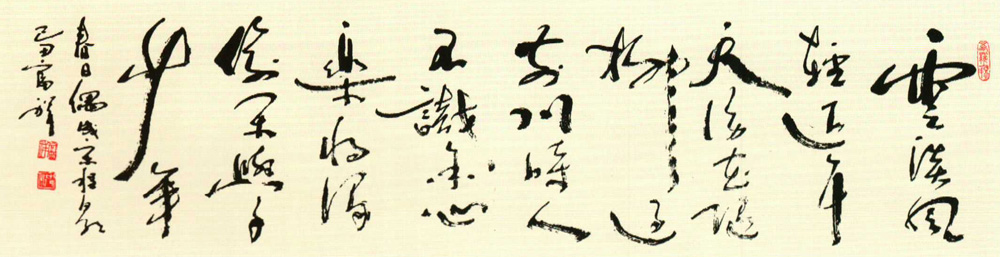 雲淡風
輕近午
天傍花隨
柳過
前川時人
不識余心
樂將謂
偷閒學
少年
春日偶成宋程顥